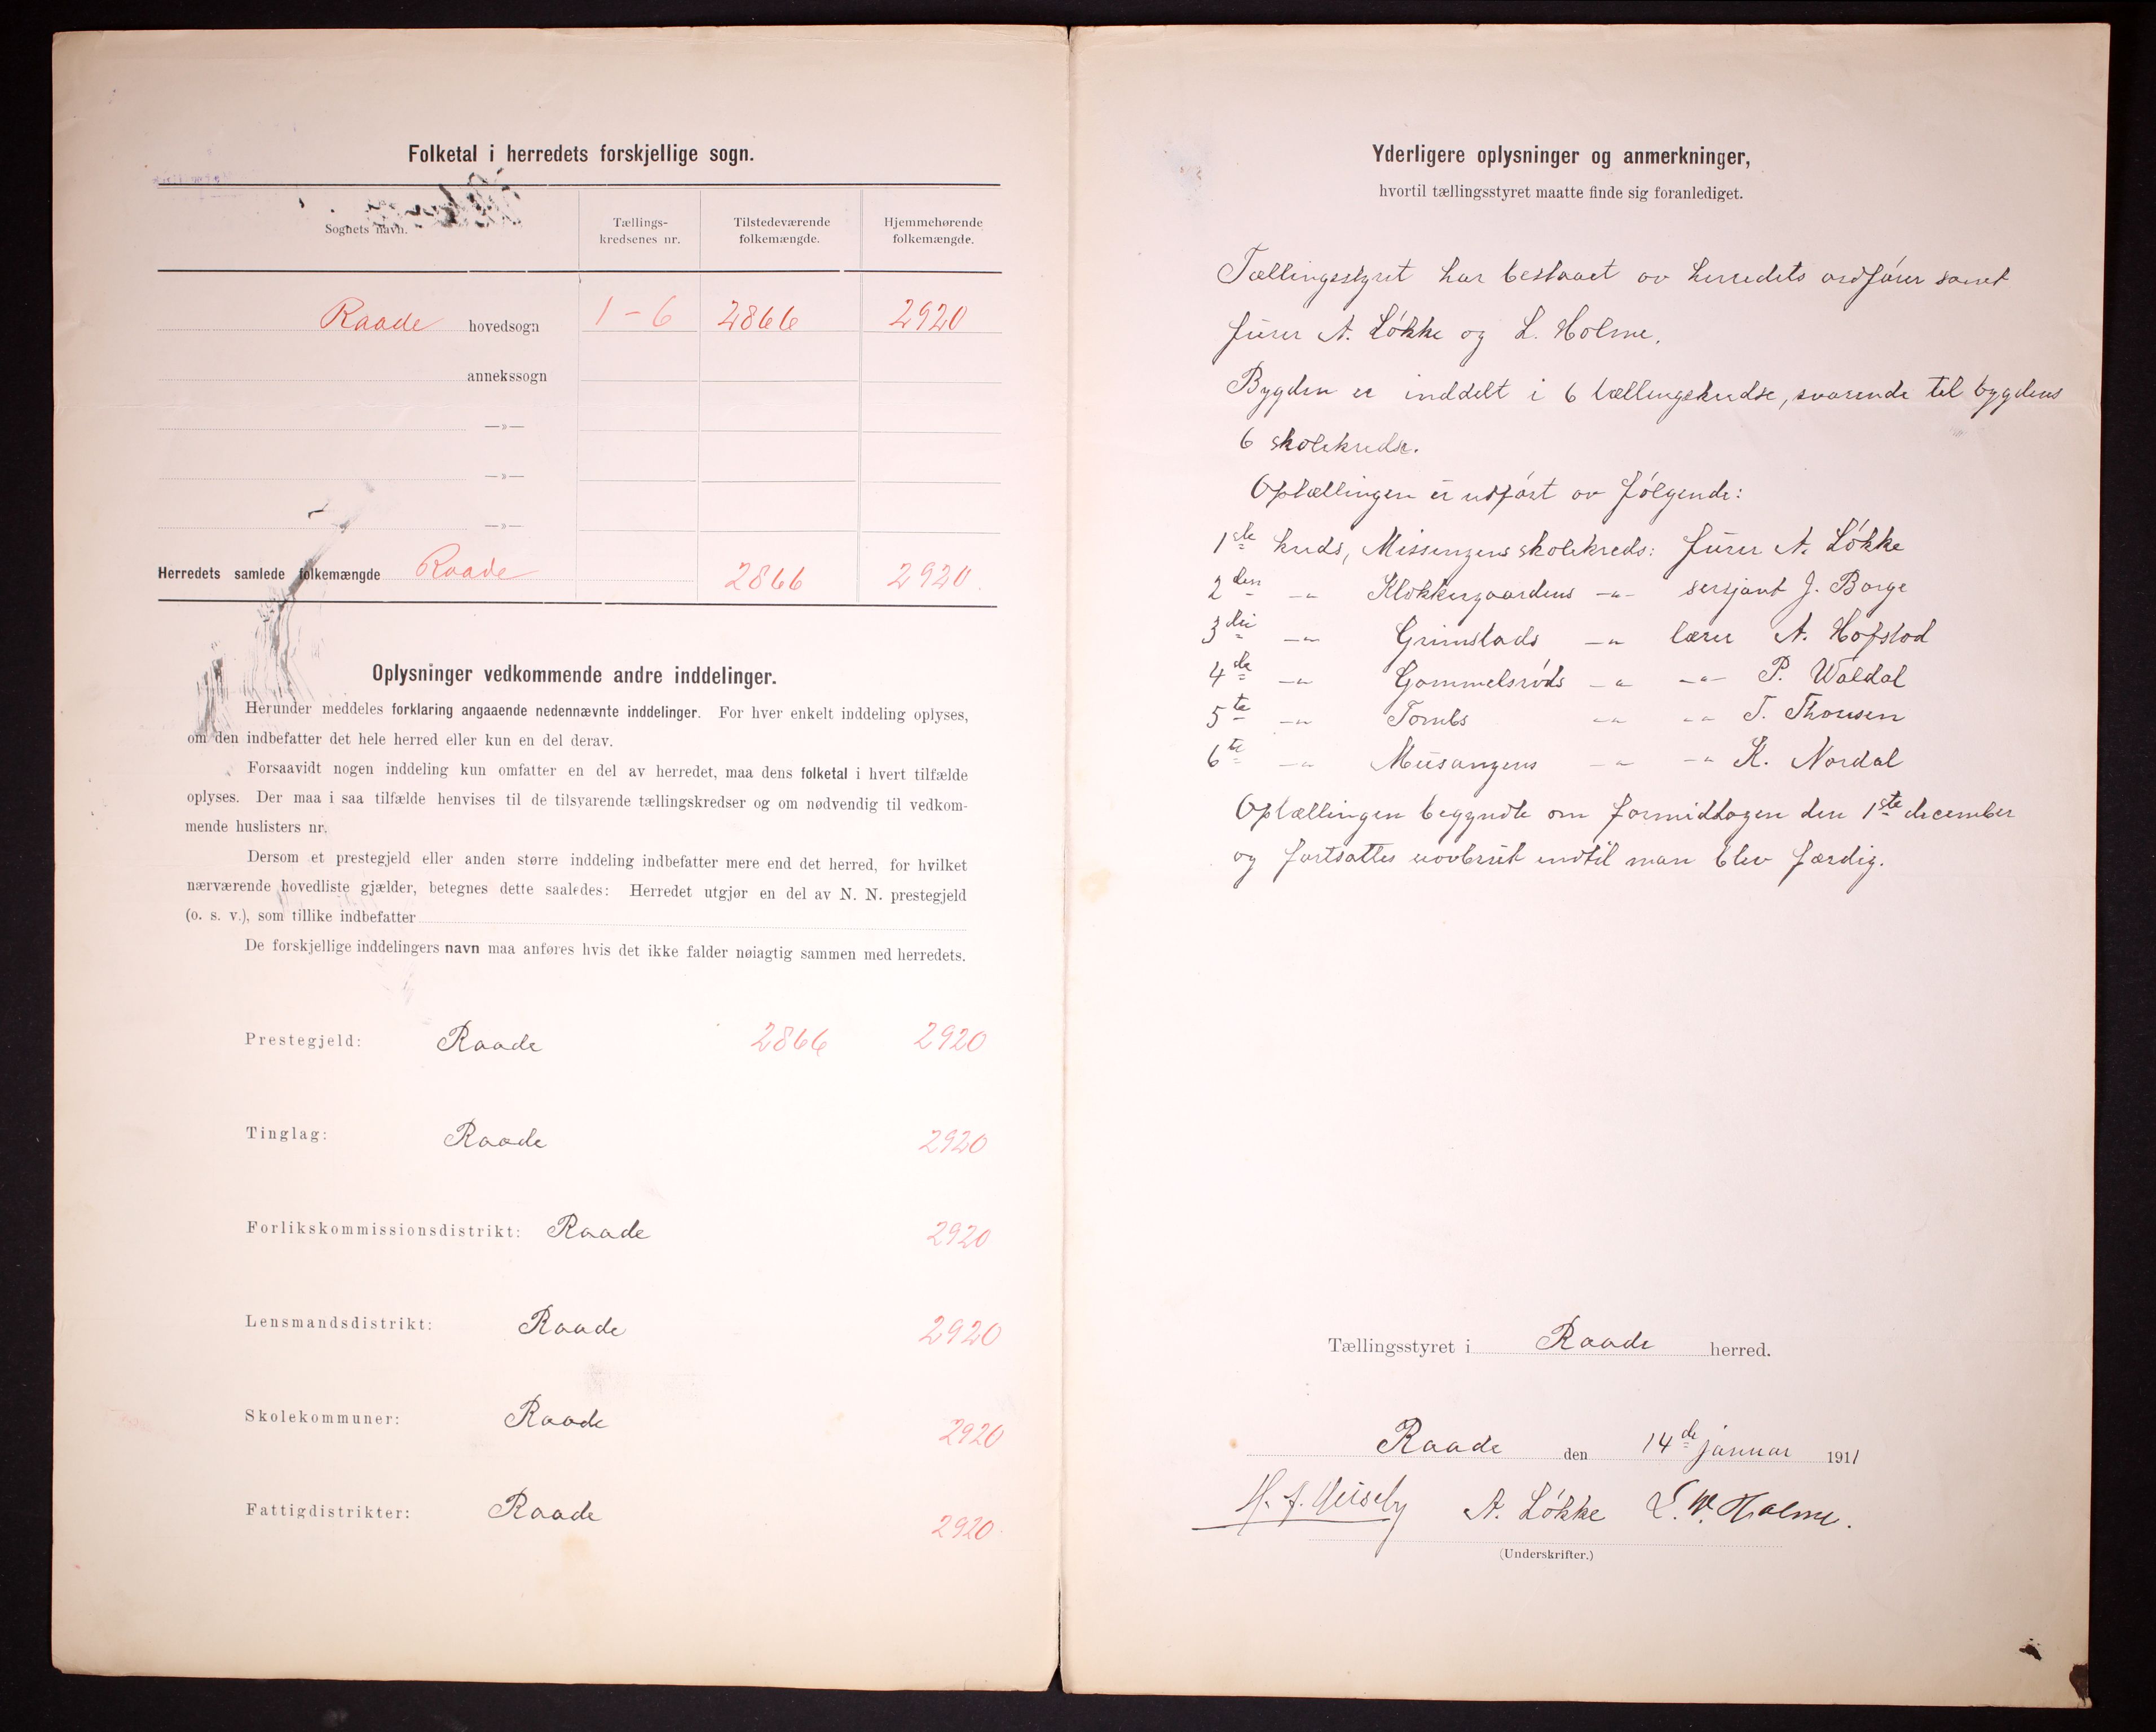 Folketal i herredets forskjellige sogn.
Sognets navn. Tællings-kredsenes nr. Tilstedeværende folkemængde. Hjemmehørende folkemængde.
Raade hovedsogn 1-6 2866 2920
annekssogn
—»—
—»—
—»—
Herredets samlede folkemængde Raade 2866 2920.
Oplysninger vedkommende andre inddelinger.
Herunder meddeles forklaring angaaende nedennævnte inddelinger. For hver enkelt inddeling oplyses,
om den indbefatter det hele herred eller kun en del derav.
Forsaavidt nogen inddeling kun omfatter en del av herredet, maa dens folketal i hvert tilfælde
oplyses. Der maa i saa tilfælde henvises til de tilsvarende tællingskredser og om nødvendig til vedkom-
mende huslisters nr.
Dersom et prestegjeld eller anden større inddeling indbefatter mere end det herred, for hvilket
nærværende hovedliste gjælder, betegnes dette saaledes: Herredet utgjør en del av N. N. prestegjeld
(o. s. v.), som tillike indbefatter
De forskjellige inddelingers navn maa anføres hvis det ikke falder nøiagtig sammen med herredets.
Prestegjeld: Raade 2866 2920
Tinglag: Raade 2920
Forlikskommissionsdistrikt: Raade 2920
Lensmandsdistrikt: Raade 2920
Skolekommuner: Raade 2920
Fattigdistrikter: Raade 2920.
Yderligere oplysninger og anmerkninger,
hvortil tællingsstyret maatte finde sig foranlediget.
Tællingsstyret har bestaaet av herredets ordfører samt
A. Løkke og L. Holme.
Bygden er inddelt i 6 tællingskredse, svarende til bygdens
6 skolekredse.
Optællingen er udført av følgende:
1ste kreds, Missingens skolekreds: A. Løkke
2den -"- Klokkergaardens -"- sersjant J. Borge
3die -"- Grimstads -"- lærer A. Hofstad
4de -"- Gammelsrøds -"- -"- P. Waldal
5te -"- Tombs -"- -"- T. Thousen
6te -"- -"- -"- K. Nordal
Optællingen begyndte om formiddagen den 1ste december
og fortsattes uavbrut indtil man blev færdig.
Tællingsstyret i Raade herred.
Raade den 14de januar 1911
H. J. A. Løkke L. W. Holme.
(Underskrifter.)